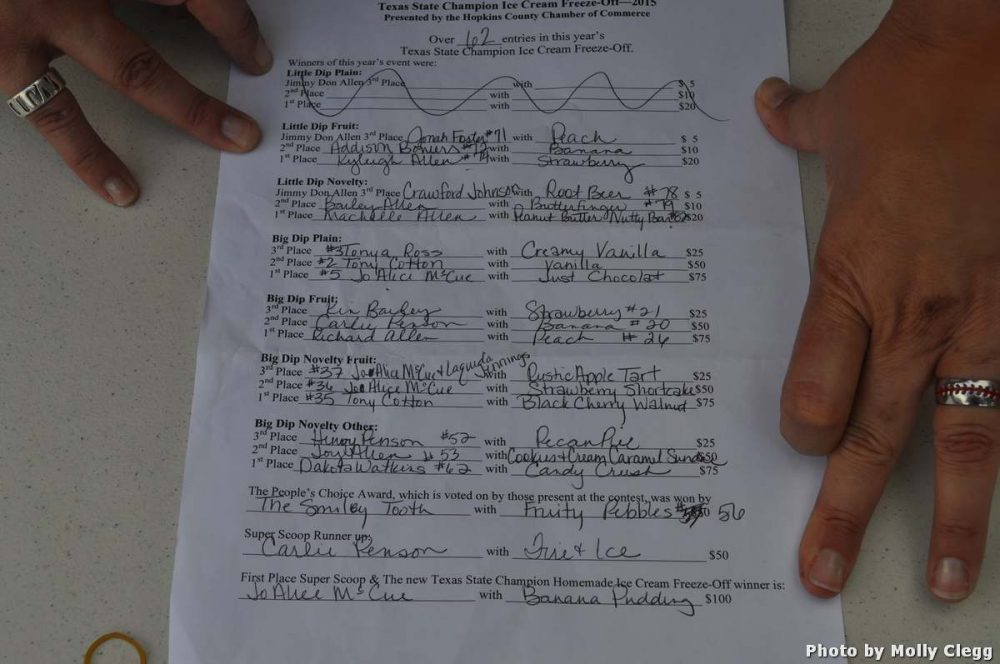 Texas State Champion Ice Cream Freeze-Off—2015
Presented by the Hopkins County Chamber of Commerce
Over 62 entries in this year's
Texas State Champion Ice Cream Freeze-Off.
Winners of this year's event were:
Little Dip Plain:
Jimmy Don Allen 3rd Place with $ 5
2nd Place with $10
1st Place with $20
Little Dip Fruit:
Jimmy Don Allen 3rd Place Jonah Foster #71 with Peach $ 5
2nd Place Addison with Banana $10
1st Place Kyleigh Allen with Strawberry $20
Little Dip Novelty:
Jimmy Don Allen 3rd Place Crawford Johnson with Root Beer #78 $ 5
2nd Place Bailey Allen with Butterfinger #79 $10
1st Place Machelle Allen with Peanut Butter Nutty Bar $20
Big Dip Plain:
3rd Place #3 Tonya Ross with Creamy Vanilla $25
2nd Place #2 Tony Cotton with Vanilla $50
1st Place #5 Jo Alice McCue with Just Chocolat $75
Big Dip Fruit:
3rd Place with Strawberry #21 $25
2nd Place Carlie Penson with Banana #20 $50
1st Place Richard Allen with Peach #26 $75
Big Dip Novelty Fruit:
3rd Place #37 Jo Alice McCue & Laquida Jennings with Rustic Apple Tart $25
2nd Place #36 Jo Alice McCue with Strawberry Shortcake $50
1st Place #35 Tony Cotton with Black Cherry Walnut $75
Big Dip Novelty Other:
3rd Place Henry Penson #52 with Pecan Pie $25
2nd Place Allen #53 with Cookies & Cream Caramel Sundae $50
1st Place Dakota Watkins #62 with Candy Crush $75
The People's Choice Award, which is voted on by those present at the contest, was won by
The Smiley Tooth with Fruity Pebbles 56
Super Scoop Runner up:
Carlie Penson with Fire & Ice $50
First Place Super Scoop & The new Texas State Champion Homemade Ice Cream Freeze-Off winner is:
Jo Alice McCue with Banana Pudding $100
Photo by Molly Clegg